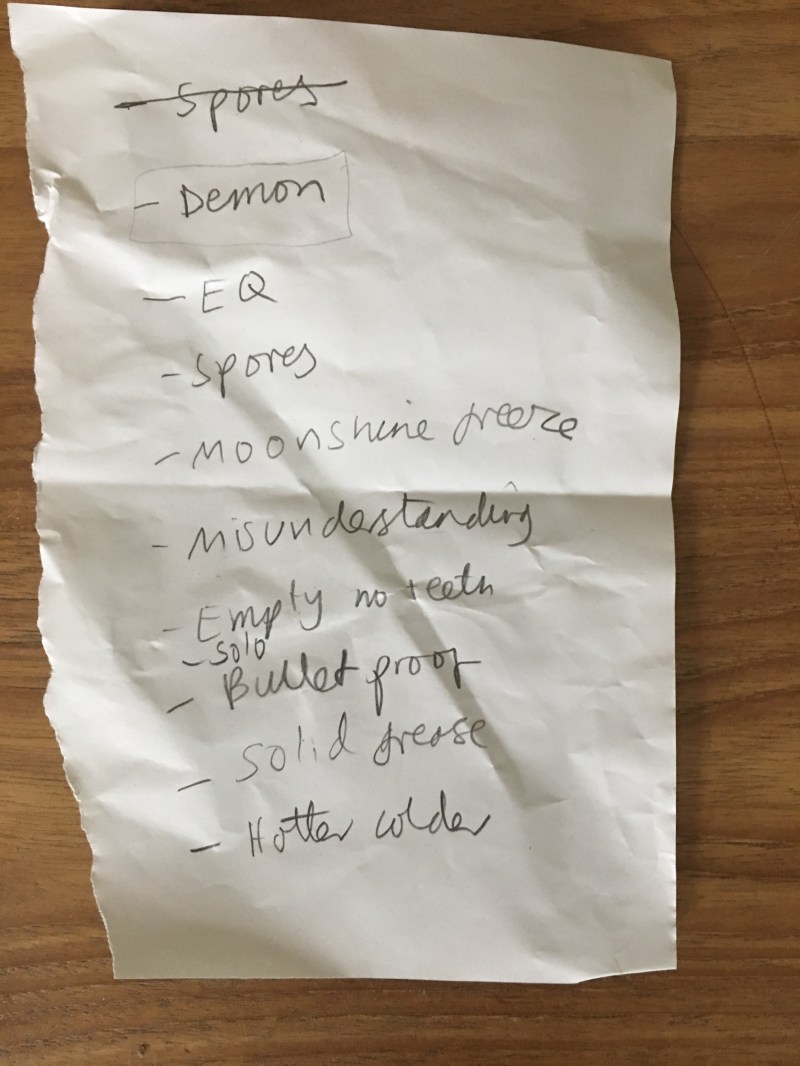 - Spores
- Demon
- EQ
- Spores
- Moonshine freeze
- Misunderstanding
- Empty no teeth
- solo
- Bulletproof
- Solid grease
- Hotter colder